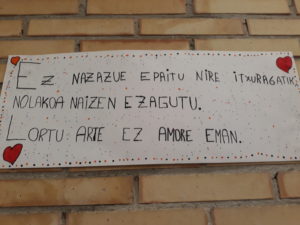 EZ NAZAZUE EPAITU NIRE ITXURAGATIK
NOLAKOA NAIZEN EZAGUTU.
LORTU ARTE EZ AMORE EMAN.